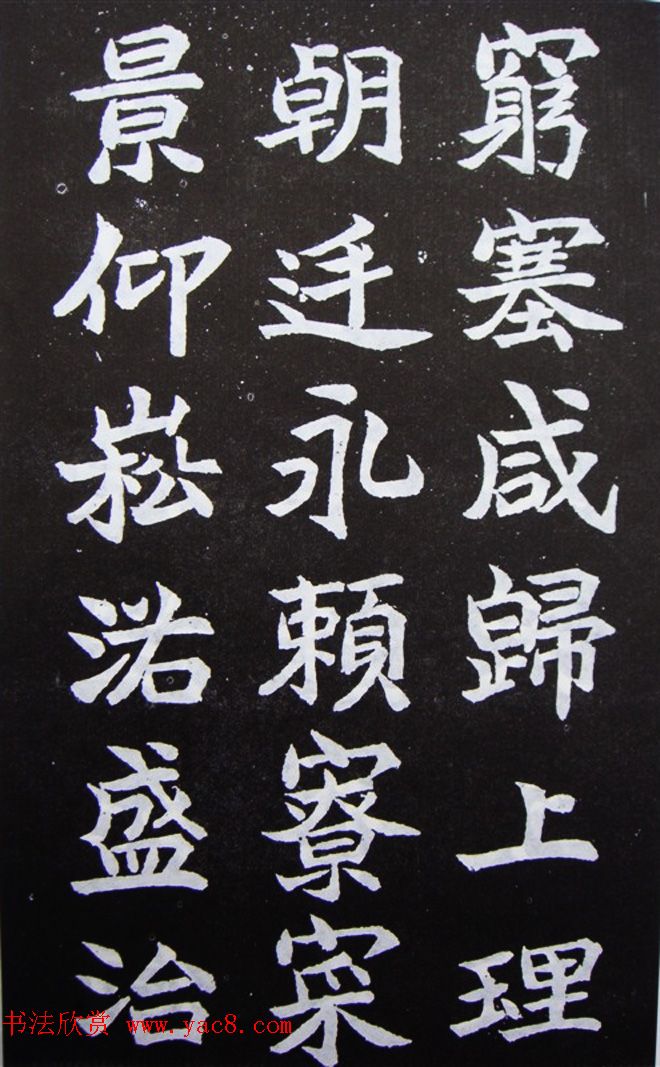 窮塞咸歸上理
朝廷永頼寮寀
景仰崧洛盛治
书法欣赏 www.yac8.com